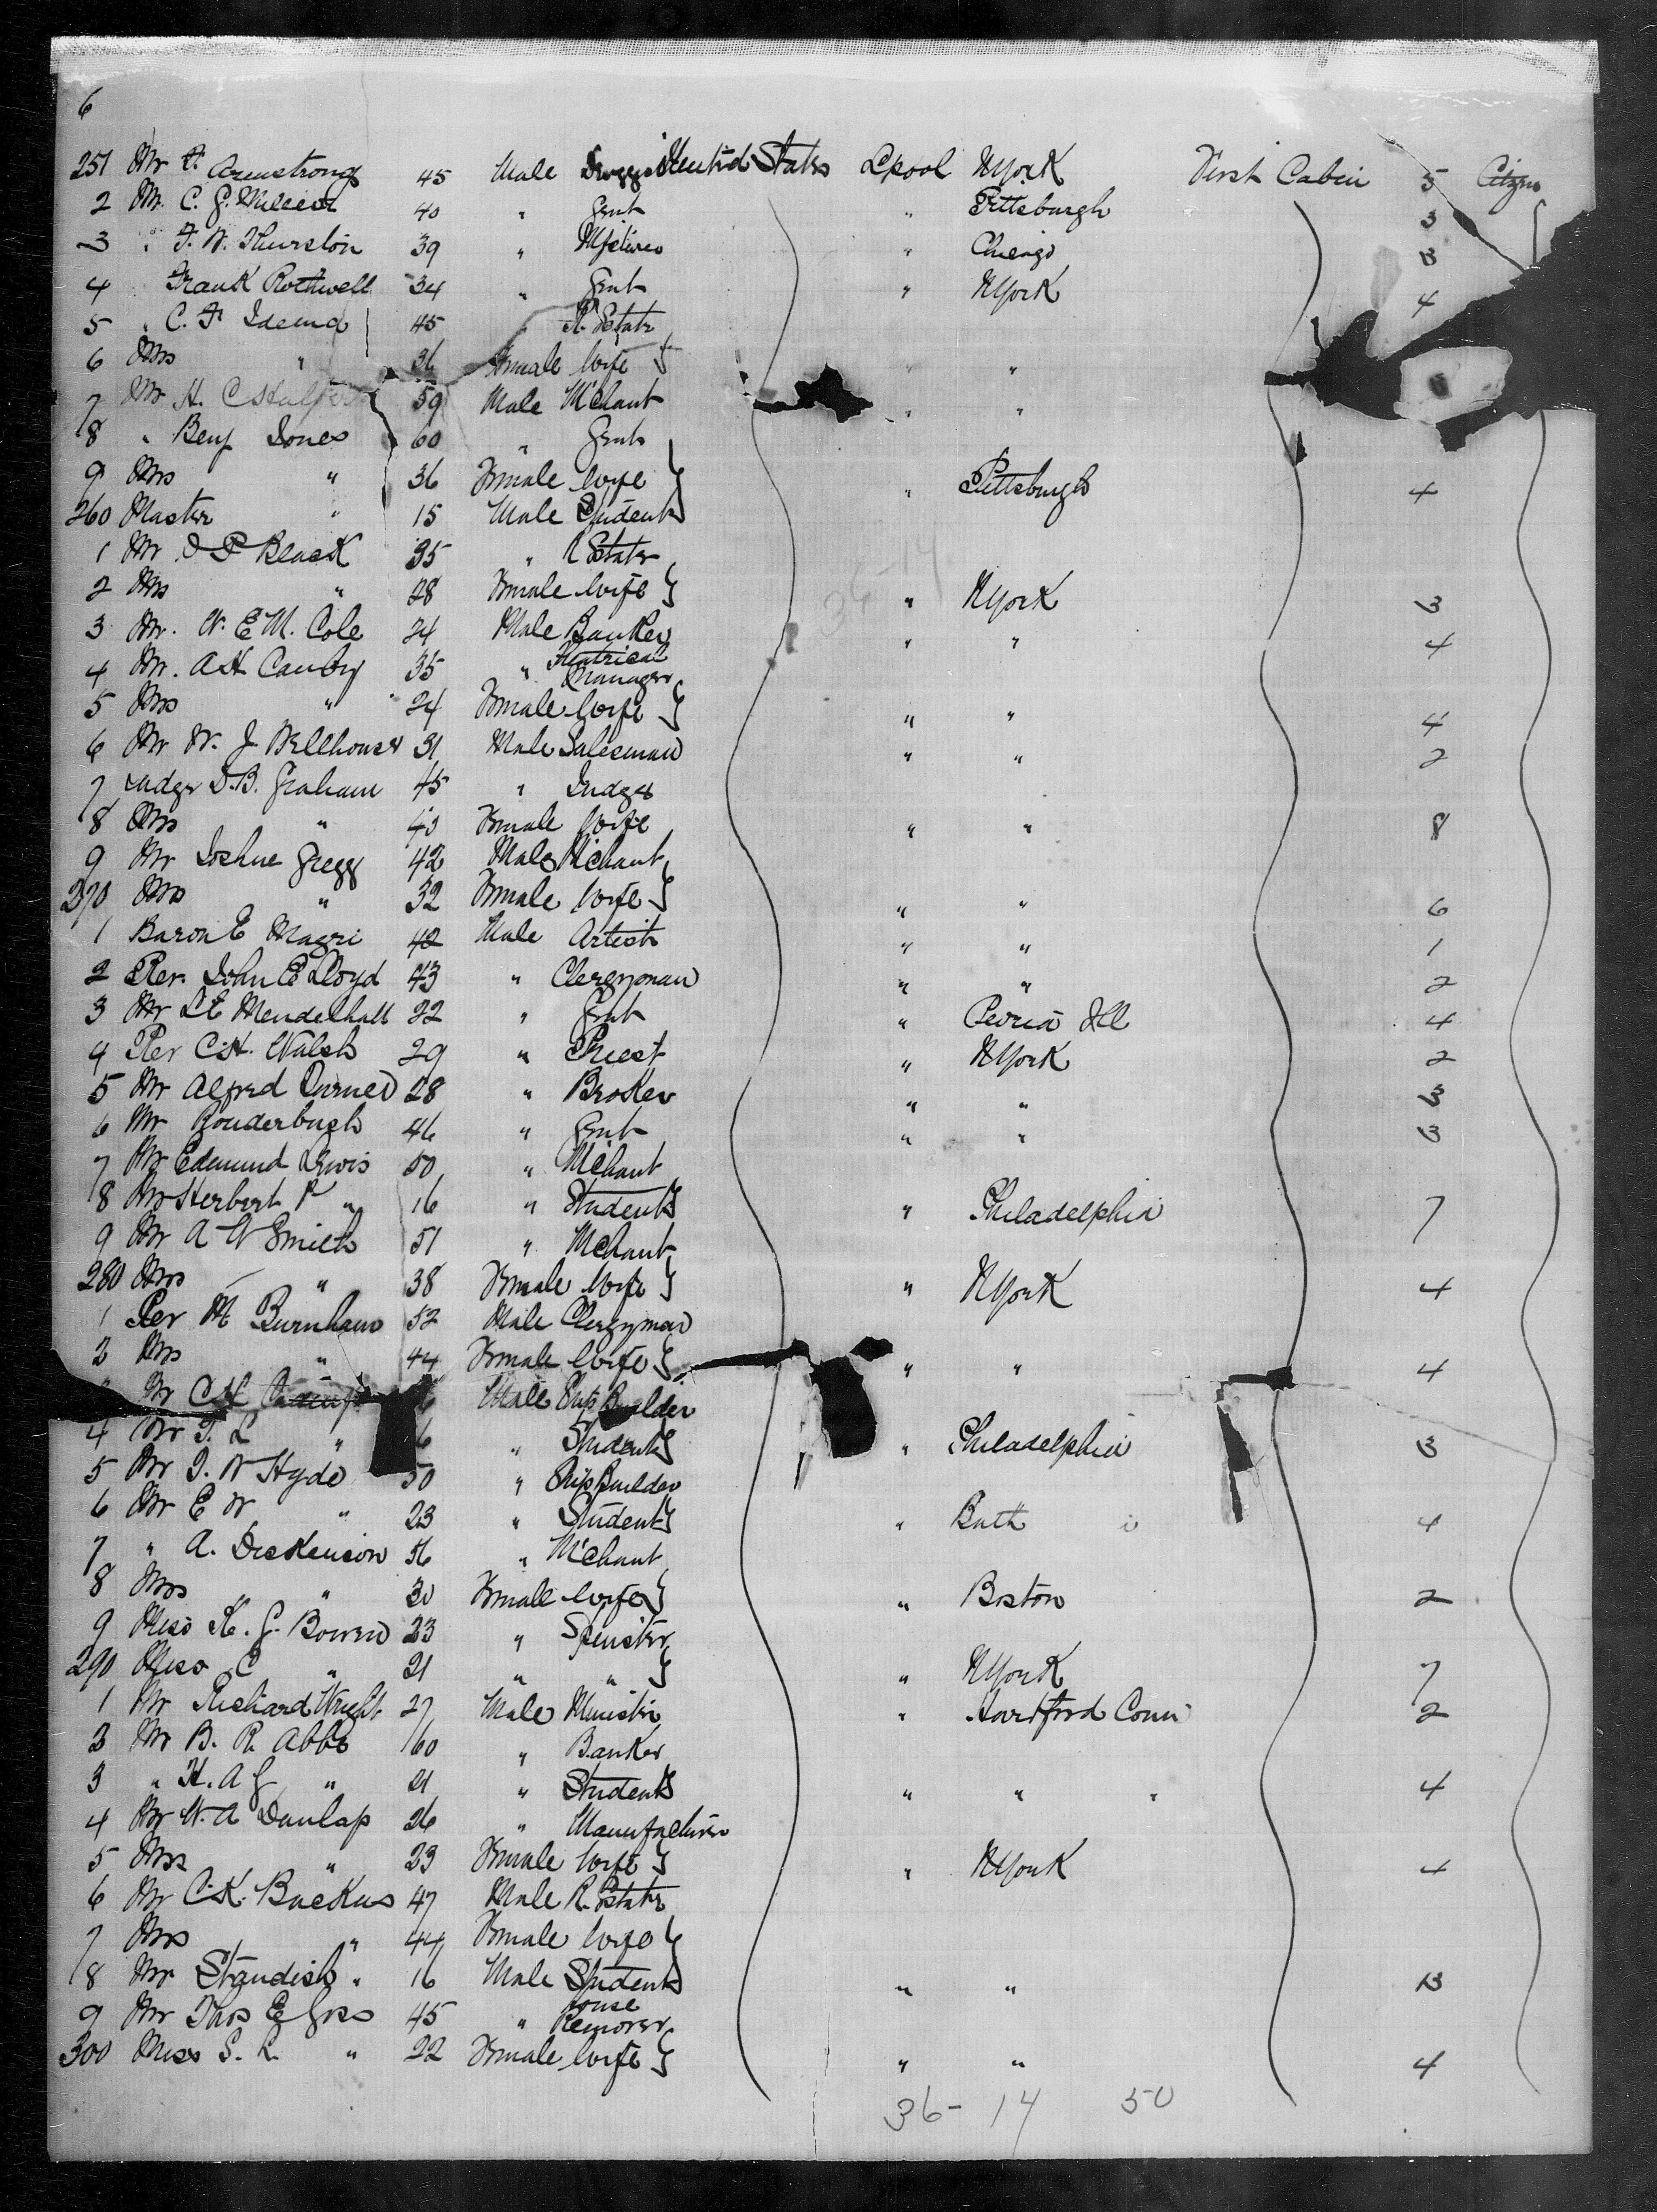 6
251 Mr F. Armstrong 45 Male Druggist United States Lpool NYork First Cabin 5 Citzns
2 Mr. C. G. 40 " Gent " Pittsburgh 3
3 " F. W. Thurston 39 " " Chicago 3
4 Frank Rothwell 34 " Gent " NYork 4
5 " C. F. 45 " R. Estate
6 Mrs " 36 Female Wife } " "
7 Mr H. C 59 Male M'chant " "
8 " Benj Jones 60 " Gent
9 Mrs " 36 Female Wife } " Pittsburgh 4
260 Master " 15 Male Student
1 Mr Black 35 " R Estate
2 Mrs " 28 Female Wife } " NYork 3
3 Mr. W. E. M. Cole 24 Male Banker " " 4
4 Mr. A H Canby 35 " Theatrical Manager
5 Mrs " 24 Female Wife } " " 4
6 Mr W. J Bellhouse 31 Male Salesman " " 2
7 Judge D. B. Graham 45 " Judge
8 Mrs " 40 Female Wife " " 8
9 Mr Joshue Gregg 42 Male M'chant
270 Mrs " 32 Female Wife } " " 6
1 Baron E Magri 42 Male Artist " " 1
2 Rev. John E Lloyd 43 " Clergyman " " 2
3 Mr L E Mendelhall 22 " Gent " Peoria Ill 4
4 Rev C. H. Walsh 29 " Priest " NYork 2
5 Mr Alfred 28 " Broker " " 3
6 Mr Rouderbush 46 " Gent " " 3
7 Mr Edmund Lewis 50 " M'chant
8 Mr Herbert P " 16 " Student } " Philadelphia 7
9 Mr A W Smith 51 " Mchant
280 Mrs " 38 Female Wife } " NYork 4
1 Rev M Burnham 52 Male Clergyman
2 Mrs " 44 Female Wife } " " 4
Mr C H 6 Male Ship Builder
4 Mr T. L " 6 " Student } " Philadelphia 3
5 Mr T. W Hyde 50 " Ship Builder
6 Mr E W " 23 " Student } " Bath 4
7 " A. Dickenson 56 " M'chant
8 Mrs " 30 Female Wife } " Boston 2
9 Miss K. G. Bowen 23 " Spinster
290 Miss C " 21 " " } " NYork 7
1 Mr Richard Wright 27 Male Minister " Hartford Conn 2
2 Mr B. R. Abbe 60 " Banker
3 " H. A G " 21 " Student } " " " 4
4 Mr W. A Dunlap 26 " Manufacturer
5 Mrs " 23 Female Wife } " NYork 4
6 Mr C. K. Backus 47 Male R. Estate
7 Mrs " 44 Female Wife }
8 Mr Standish " 16 Male Student " " 13
9 Mr Thos E Goss 45 " House Remover
300 Miss S. L " 22 Female Wife } " " 4
36 - 14 50